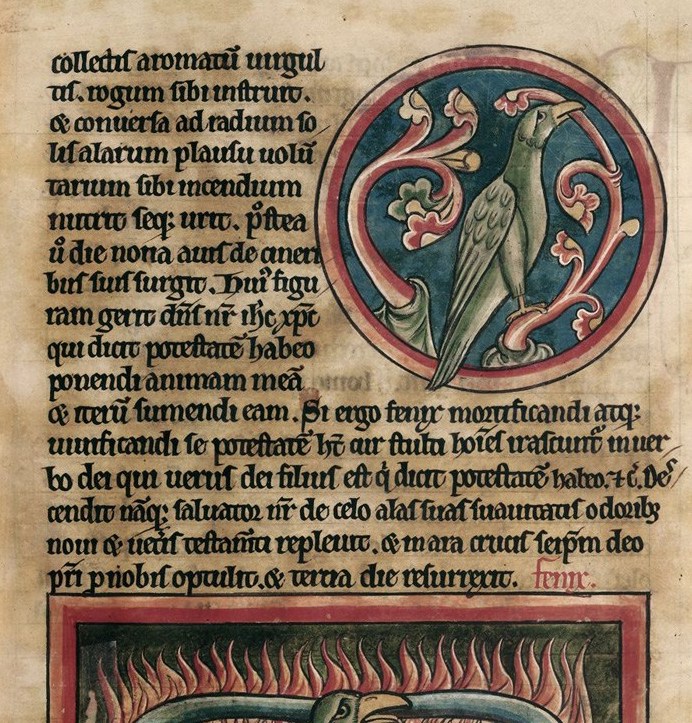 collectis aromatū uirgul
tis. rogum sibi instruit.
& conuersa ad radium so
lis alarum plausu uolū
tarium sibi incendium
nutrit seq; urit. p̾ostea
ů die nona auis de cineri
bus suis surgit. Hui᷒ figu
ram gerit dn̄s nr̄ ih̄c xp̄c
qui dicit potestatē habeo
ponendi animam meā
& iterū sumendi eam. Si ergo fenix mortificandi atq;
uiuificandi se potestatē ht̄ cur stulti hoīes irascunt᷑ in uer
bo dei qui uerus dei filius est q̇ dicit potestatē habeo. ⁊ c̄. Des
cendit nāq; saluator nr̄ de celo alas suas suauitatis odorib᷒
noui & uet̄is testam̄ti repleuit. & in ara crucis seip̄m deo
pr̄i p̱ nobis optulit. & tertia die resurrexit. fenix.